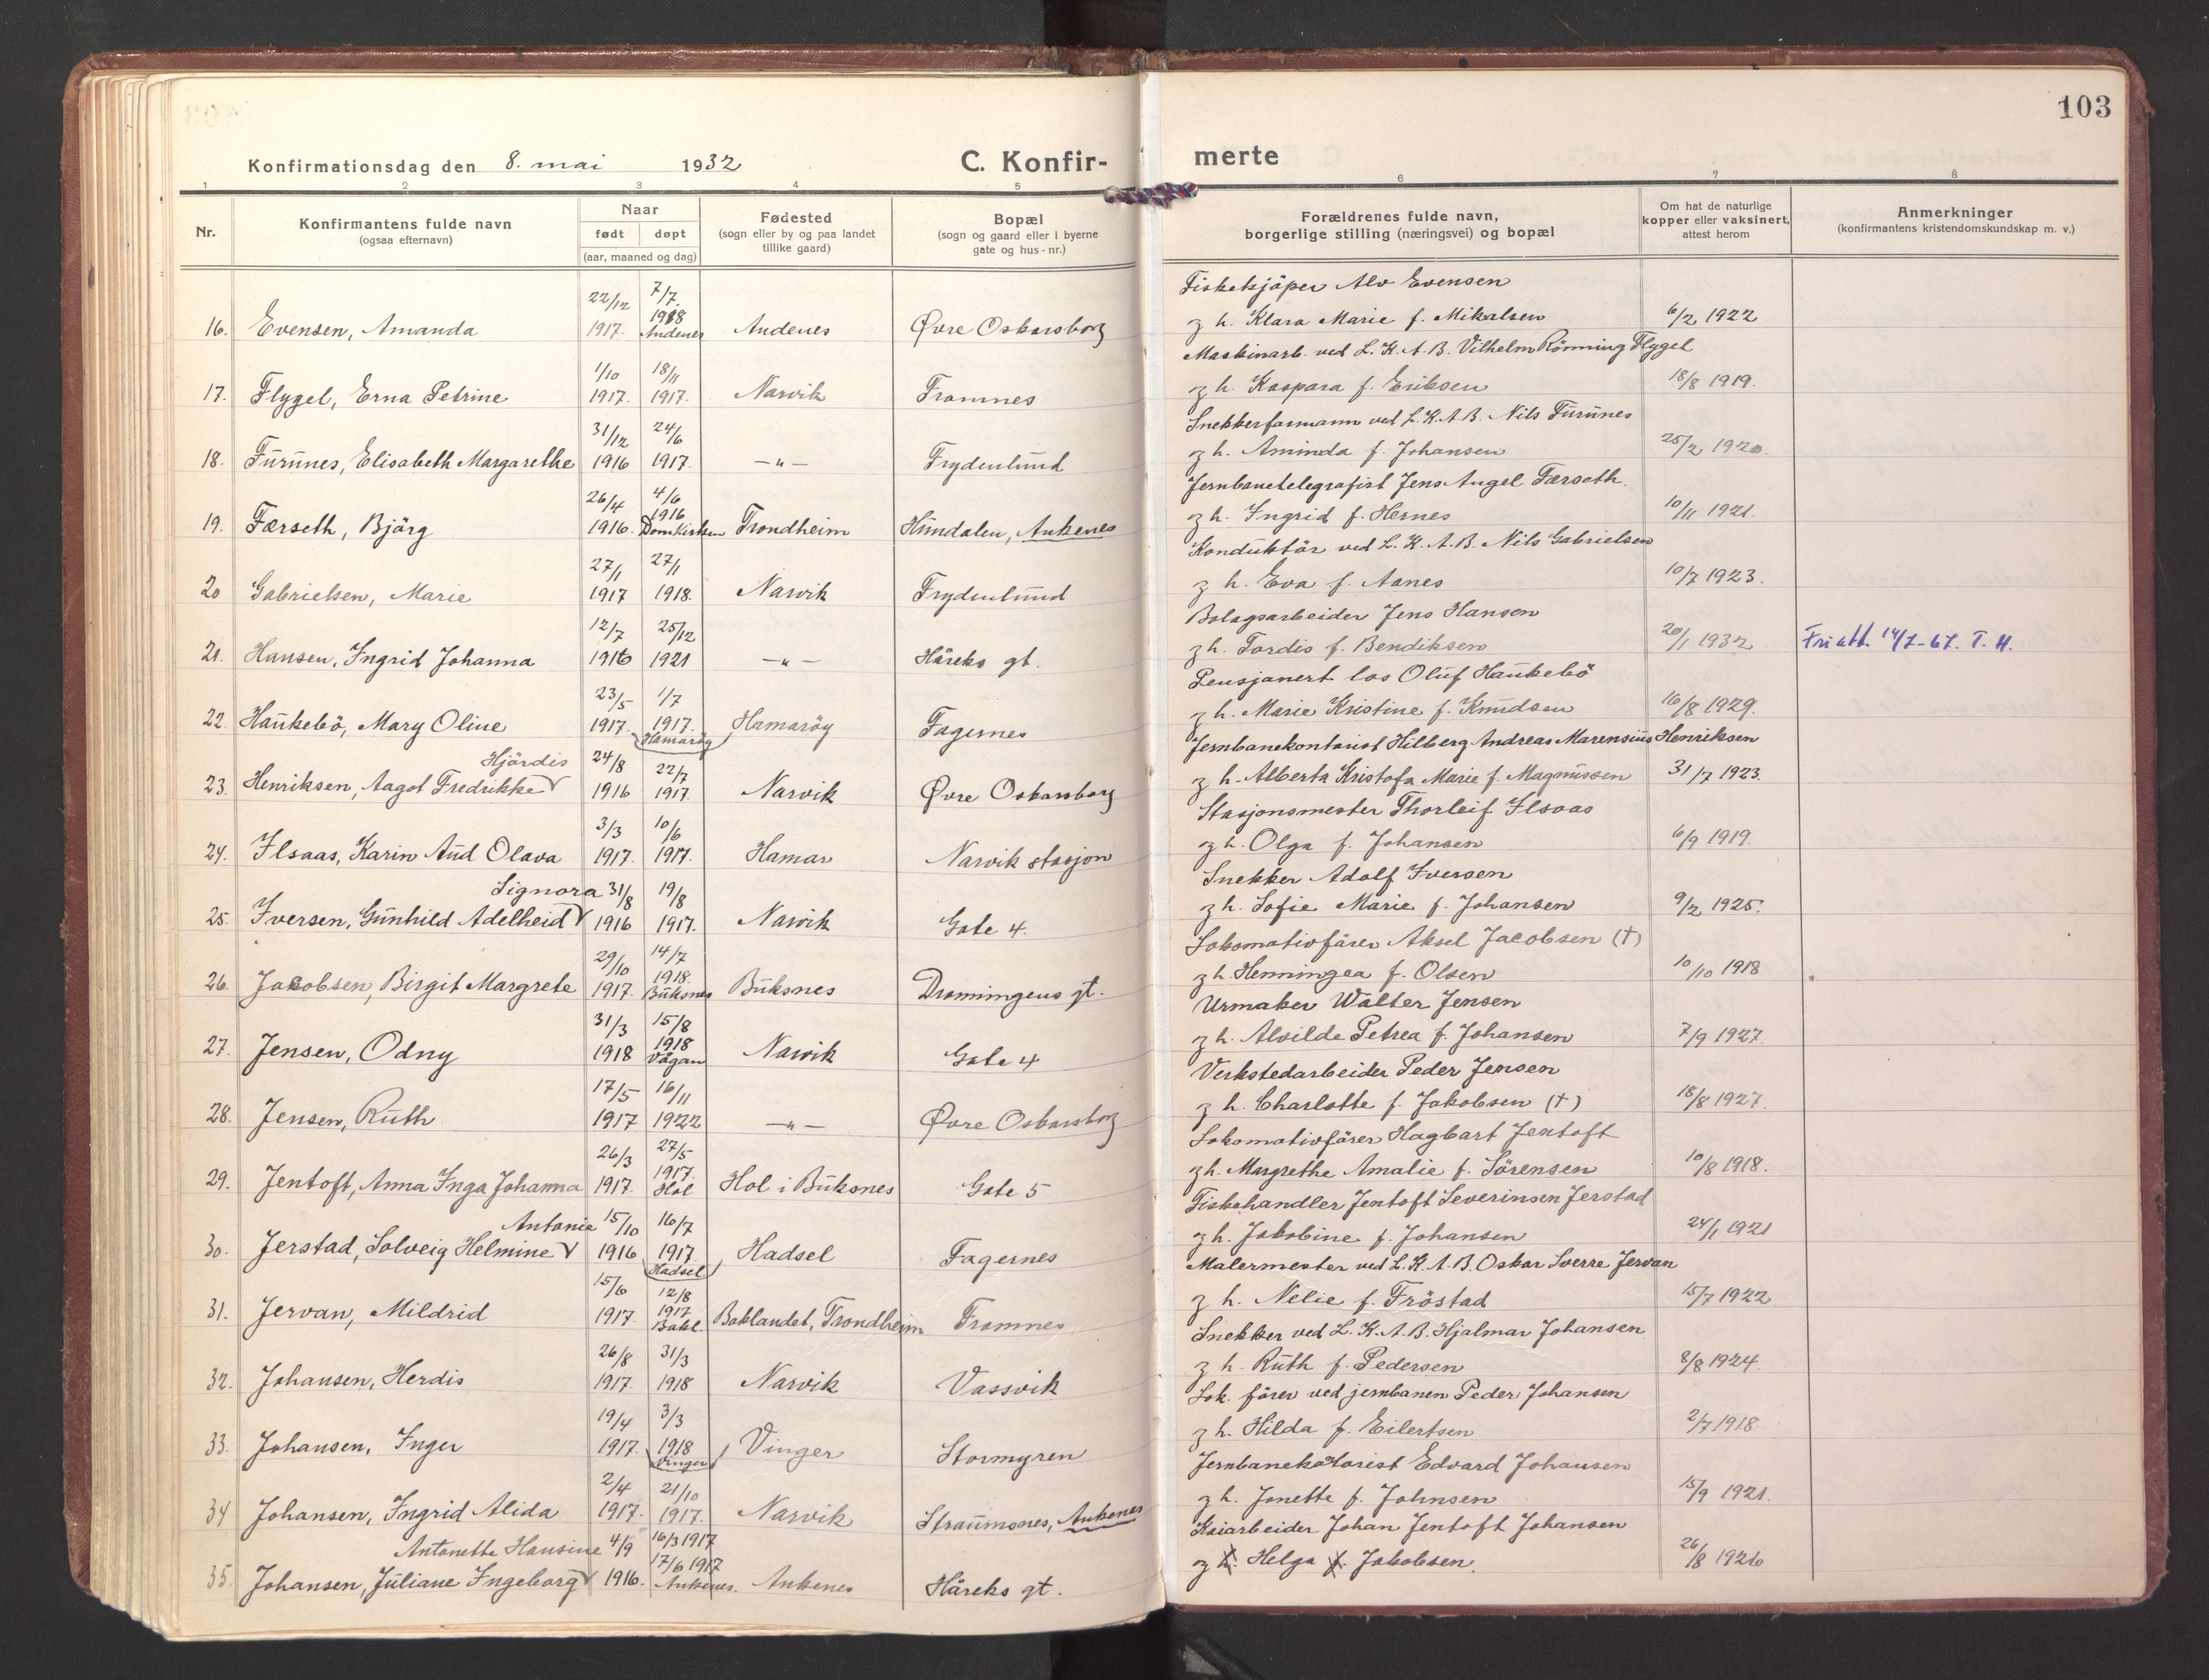 103
Konfirmationsdag den 8. mai 1932
C. Konfir-
merte
1 2 3 4 5 6 7 8
Nr.
Konfirmantens fulde navn
(ogsaa efternavn)
Naar
født døpt
(aar, maaned og dag)
Fødested
(sogn eller by og paa landet
tillike gaard)
Bopæl
(sogn og gaard eller i byerne
gate og hus-nr.)
Forældrenes fulde navn,
borgerlige stilling (næringsvei) og bopæl
Om hat de naturlige
kopper eller vaksinert,
attest herom
Anmerkninger
(konfirmantens kristendomskundskap m. v.)
22/12 7/7 Fiskekjöper Alv Evensen
1918
16. Evensen, Amanda 1917. Andenes Andenes Øvre Oskarsborg og h. Klara Marie f. Mikalsen 6/2 1922
1/10 18/11 Maskinarb. ved L.K.A.B. Vilhelm Rönning Flygel
17. Flygel, Erna Petrine 1917. 1917. Narvik Framnes og h. Kaspara f. Eriksen 18/8 1919.
31/12 24/6 Snekkerformann ved L.K.A.B. Nils Furunes
18. Furunes, Elisabeth Margarethe 1916 1917. —„— Frydenlund og h. Aminda f. Johansen 25/2 1920.
26/4 4/6 Jernbanetelegrafist Jens Angel Færseth.
1916
19. Færseth, Björg 1916. Domkirken Trondheim Hundalen, Ankenes og h. Ingrid f. Hernes 10/11 1921.
27/1 27/1 Konduktör ved L.K.A.B. Nils Gabrielsen
20 Gabrielsen, Marie 1917 1918. Narvik Frydenlund og h. Eva f. Aanes 10/7 1923.
12/7 25/12 Bolagsarbeider Jens Hansen
21. Hansen, Ingrid Johanna 1916 1921 —„— Håreks gt. og h. Tordis f. Bendiksen 20/1 1932 Friatt. 14/7-67. T. H.
23/5 1/7 Pensjonert los Oluf Haukebö
22. Haukebö, Mary Oline 1917. 1917. Hamaröy Fagernes og h. Marie Kristine f. Knudsen 16/8 1929.
Hamaröy
Hjördis 24/8 22/7 Jernbanekontorist Hilberg Andreas Marensius Henriksen
23. Henriksen, Aagot Fredrikke V 1916 1917. Narvik Øvre Oskarsborg og h. Alberta Kristofa Marie f. Magnussen 31/7 1923.
3/3 10/6 Stasjonsmester Thorleif Ilsaas
24. Ilsaas, Karin Aud Olava 1917. 1917. Hamar Narvik stasjon og h. Olga f. Johansen 6/9 1919.
Signora 31/8 19/8 Snekker Adolf Iversen
25. Iversen, Gunhild Adelheid V 1916 1917. Narvik Gate 4. og h. Sofie Marie f. Johansen 9/2 1925.
29/10 14/7 Lokomotivförer Aksel Jacobsen (†)
1918.
26. Jakobsen, Birgit Margrete 1917. Buksnes Buksnes Dronningens gt. og h. Henningea f. Olsen 10/10 1918
31/3 15/8 Urmaker Walter Jensen
1918
27. Jensen, Odny 1918 Vågan Narvik Gate 4 og h. Alvilde Petrea f. Johansen 7/9 1927.
17/5 16/11 Verkstedarbeider Peder Jensen
28. Jensen, Ruth 1917 1922 —„— Øvre Oskarsborg og h. Charlotte f. Jakobsen (†) 18/8 1927.
26/3 27/5 Lokomotivförer Hagbart Jentoft
1917.
29. Jentoft, Anna Inga Johanna 1917. Hol Hol i Buksnes Gate 5 og h. Margrethe Amalie f. Sörensen 10/8 1918.
Antonie 15/10 16/7 Fiskehandler Jentoft Severinsen Jerstad
30. Jerstad, Solveig Helmine V 1916 1917 Hadsel Fagernes og h. Jakobine f. Johansen 24/1 1921
Hadsel
15/6 12/8 Malermester ved L.K.A.B. Oskar Sverre Jervan
1917
31. Jervan, Mildrid 1917. Bakl. Baklandet, Trondheim Framnes og h. Nelie f. Fröstad 15/7 1922
26/8 31/3 Snekker ved L.K.A.B. Hjalmar Johansen
32. Johansen, Herdis 1917. 1918 Narvik Vassvik og h. Ruth f. Pedersen 8/8 1924.
19/4 3/3 Lok. förer ved jernbanen Peder Johansen
33. Johansen, Inger 1917. 1918 Vinger Stormyren og h. Hilda f. Eilertsen 2/7 1918.
Vinger
2/4 21/10 Jernbanekontorist Edvard Johansen
34 Johansen, Ingrid Alida 1917. 1917. Narvik Straumsnes, Ankenes og h. Jonette f. Johnsen 15/9 1921.
Antonette Hansine 4/9 16/3 1917 Kaiarbeider Johan Jentoft Johansen
17/6 1917
35. Johansen, Juliane Ingeborg V 1916. Ankenes. Ankenes Håreks gt. og h. Helga f. Jakobsen. 26/8 1926